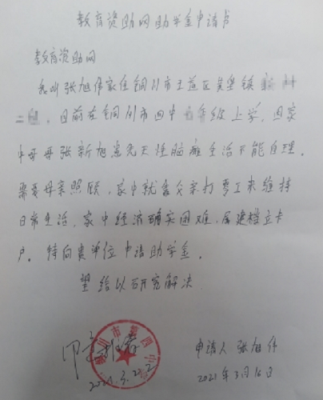 教育资助网助学金申请书
教育资助网
我叫张旭伟家住铜川市王益区黄堡镇新村
二组,目前在铜川市四中七年级上学,因家
中母张新旭患先天性脑瘫生活不能自理,
需要母亲照顾,家中就靠父亲打零工来维持
日常生活,家中经济确实困难,属建档立卡
户,特向贵单位申请助学金。
望给以研究解决
申请人 张旭伟
2021年3月16日